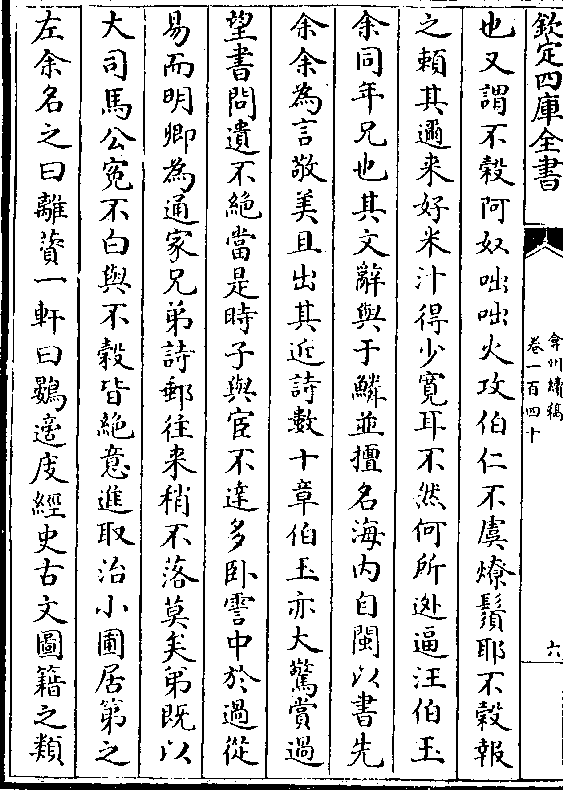 欽定四庫全書
弇州續稿
卷一百四十
六
也又謂不榖阿奴咄咄火攻伯仁不虞燎鬚耶不榖報
之頼其邇来好米汁得少寛耳不然何所逃逼汪伯玉
余同年兄也其文辭與于鱗並擅名海内自閩以書先
余余為言敬美且出其近詩數十章伯玉亦大驚賞過
望書問遺不絶當是時子與宦不達多卧雪中於過從
易而明卿為通家兄弟詩郵往来稍不落莫矣弟既以
大司馬公寃不白與不榖皆絶意進取治小圃居第之
左余名之曰離薋一軒曰鷃適庋經史古文圖籍之類